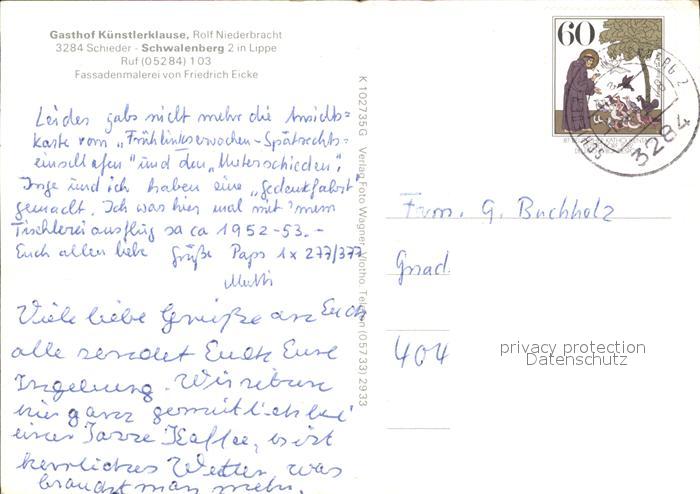 Gasthof Künstlerklause, Rolf Niederbracht
3284 Schieder - Schwalenberg 2 in Lippe
Ruf (05284) 103
Fassadenmalerei von Friedrich Eicke
Leider gabs nicht mehr die Ansichts=
karte vom „Frühlinkserwachen-Spätrechts=
einschlafen" und den „Unterschieden".
Inge und ich haben eine „Gedenkfahrt"
gemacht. Ich was hier mal mit 'nem
Tischlereiausflug so ca 1952-53.-
Euch allen liebe Grüße Paps 1x 277/377
Mutti
Viele liebe Grüße an Euch
alle sendet Euch Eure
Ingeburg. Wir sitzen
hier ganz gemütlich bei
einer Tasse Kaffee, es ist
herrliches Wetter, was
braucht man mehr.
K 102735G Verlag Foto Wagner, Vlotho, Telefon (05733) 2933
60
3284
Fam. G. Buchholz
Gnad
404
privacy protection
Datenschutz